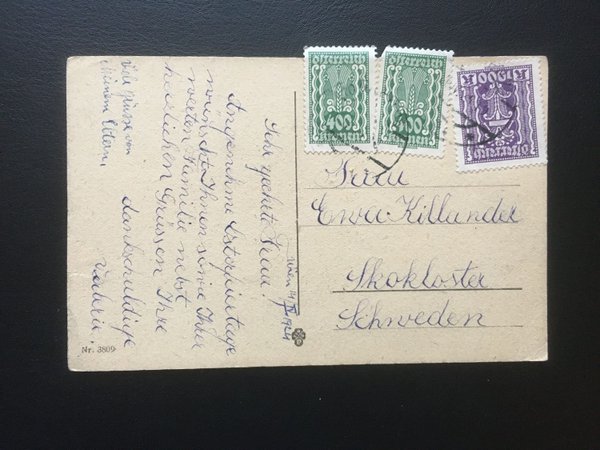 Sehr geehrte Frau!
Angenehme Osterfeiertage
wünscht Ihnen sowie Ihrer
werten Familie nebst
herzlichen Grüssen Ihre
dankschuldige
Valerie
Viele Grüsse von
Meinen Eltern.
Wien 14 IV 1924
Nr. 3809
österreich
400
Kronen
österreich
400
Kronen
1000
Kronen
Frau
Ewa Killander
Skokloster
Schweden